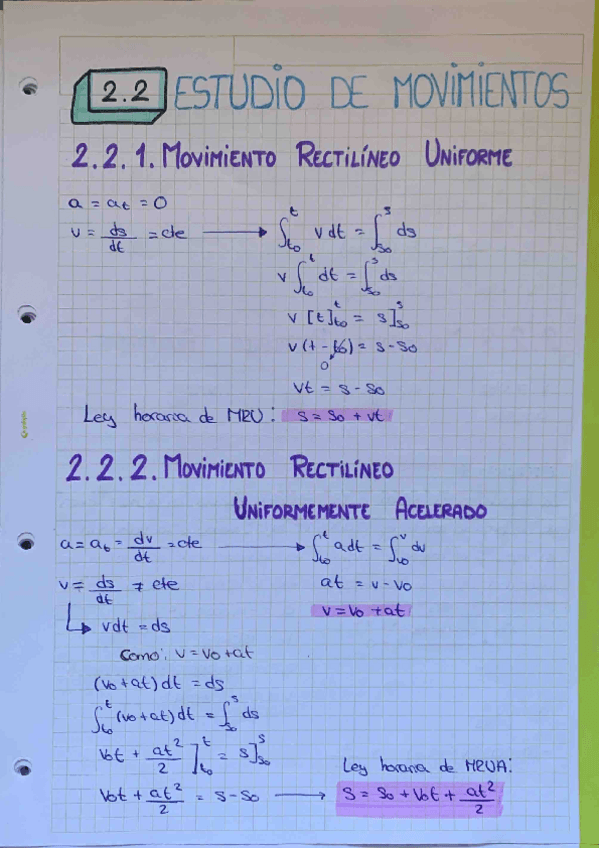 2.2 ESTUDIO DE MOVIMIENTOS
2.2.1. MOVIMIENTO RECTILÍNEO UNIFORME
a = at = 0
v = ds/dt = cte → ∫_{to}^{t} v dt = ∫_{so}^{s} ds
v ∫_{to}^{t} dt = ∫_{so}^{s} ds
v [t]_{to}^{t} = s]_{so}^{s}
v(t - to) = s - so
0
vt = s - so
Ley horaria de MRU: s = so + vt
2.2.2. MOVIMIENTO RECTILÍNEO
UNIFORMEMENTE ACELERADO
a = at = dv/dt = cte → ∫_{to}^{t} a dt = ∫_{vo}^{v} dv
v = ds/dt ≠ cte
at = v - vo
v = vo + at
↳ v dt = ds
Como: v = vo + at
(vo + at) dt = ds
∫_{to}^{t} (vo + at) dt = ∫_{so}^{s} ds
vot + at²/2 ]_{to}^{t} = s]_{so}^{s}
Ley horaria de MRUA:
vot + at²/2 = s - so → s = so + vot + at²/2